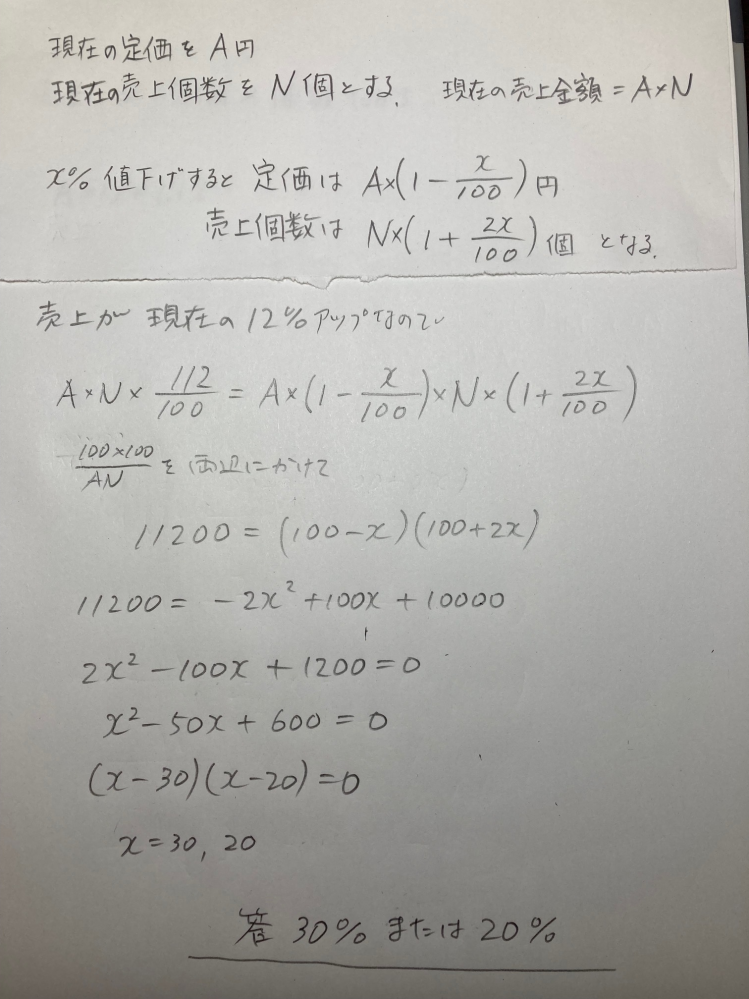 現在の定価を A円
現在の売上個数を N個とする. 現在の売上金額 = A×N
x% 値下げすると 定価は A×(1 - x/100)円
売上個数は N×(1 + 2x/100)個 となる.
売上が 現在の 12%アップなので
A×N× 112/100 = A×(1 - x/100)×N×(1 + 2x/100)
100×100/AN を 両辺にかけて
11200 = (100-x)(100+2x)
11200 = -2x² +100x + 10000
2x² -100x + 1200 = 0
x² - 50x + 600 = 0
(x-30)(x-20)=0
x = 30, 20
答 30% または 20%